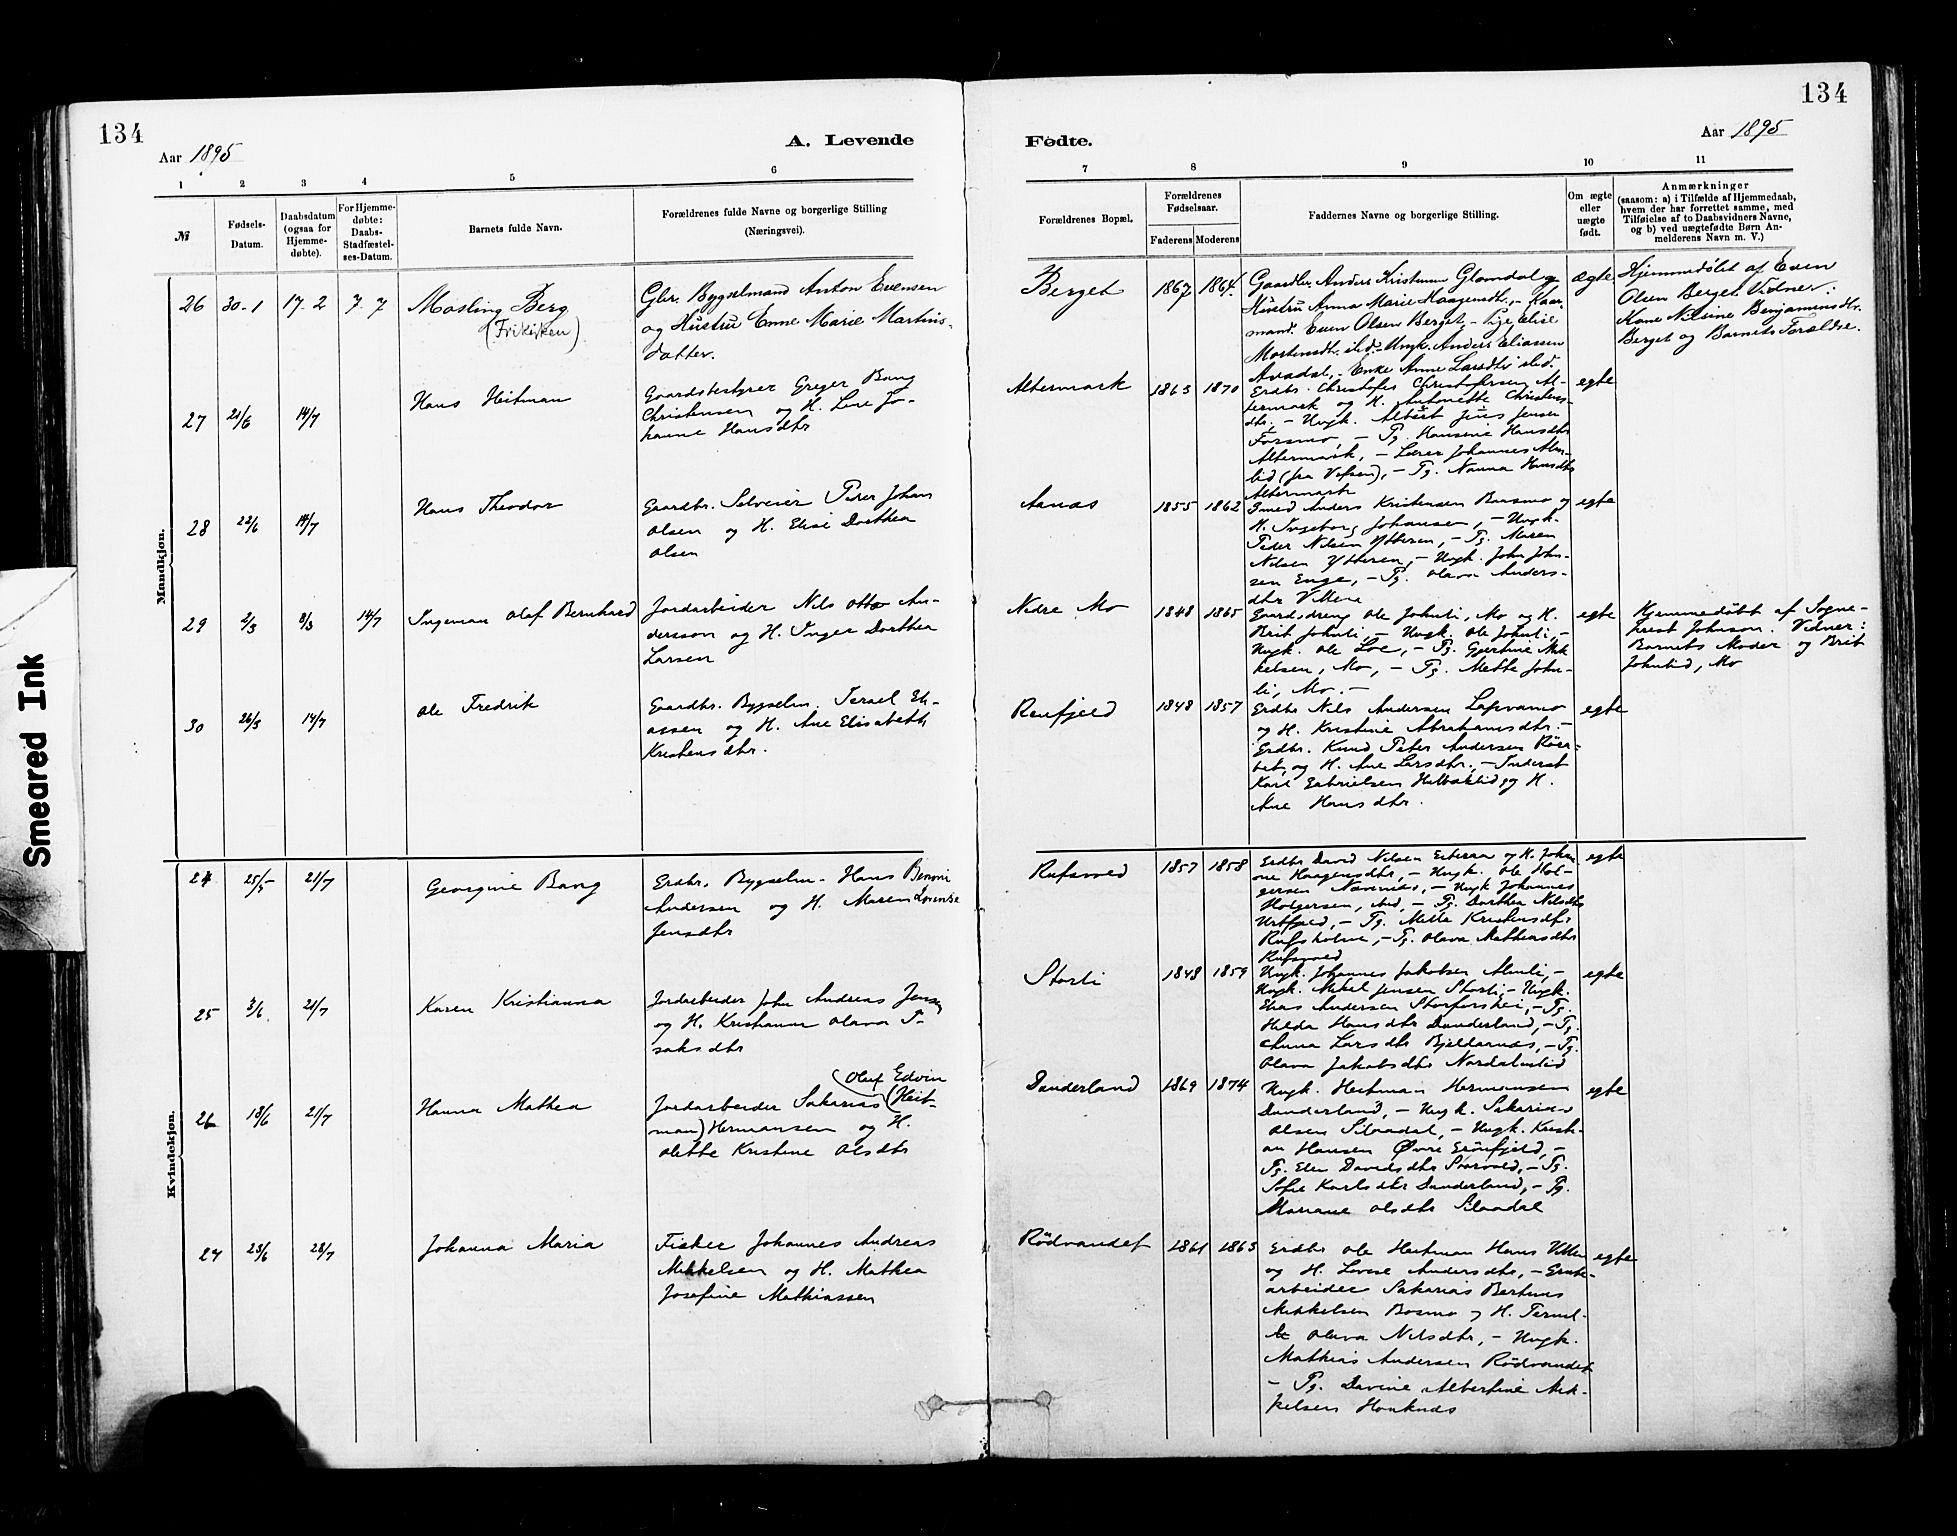 134
Aar 1895
A. Levende
1 2 3 4 5 6
№
Fødsels-
Datum.
Daabsdatum
(ogsaa for
Hjemme-
døbte).
For Hjemme-
døbte:
Daabs-
Stadfæstel-
ses-Datum.
Barnets fulde Navn.
Forældrenes fulde Navne og borgerlige Stilling
(Næringsvei).
Mandkjøn.
26 30-1 17-2 7-7
Berg
Gbr. Bygselmand Anton Evensen
og Hustru Enne Marie Martins-
datter.
27 21/6 14/7
Hans Heitman
Gaardsbestyrer Greger Bang
Christensen og H. Lene Jo-
hanne Hansdtr
28 22/6 14/7
Hans Theodor
Gaardbr. Selveier Peter Johan
Olsen og H. Elise Dorthea
Olsen
29 2/3 8/3 14/7
Ingeman Olaf Bernhard
Jordarbeider Nils Otto An-
dersson og H. Inger Dorthea
Larsen
30 26/3 14/7
Ole Fredrik
Gaardbr. Bygselm. Israel Eli-
assen og H. Ane Elisabeth
Kristensdtr.
Kvindekjøn.
24 25/5 21/7
Georgine Bang
Erdbr. Bygselm. Hans Benoni
Andersen og H. Maren Lorentse
Jensdtr
25 3/6 21/7
Karen Kristianna
Jordarbeider John Andreas Jensen
og H. Kristianna Olava I-
saksdtr
26 18/6 21/7
Hanna Mathea
(Oluf Edvin
Jordarbeider Sakarias (Heit-
man) Hermansen og H.
Olette Kristine Olsdtr
27 23/6 28/7
Johanna Maria
Fisker Johannes Andreas
Mikkelsen og H. Mathea
Josefine Mathiassen
134
Aar 1895
Fødte.
7 8 9 10 11
Forældrenes Bopæl.
Forældrenes
Fødselsaar.
Faderens Moderens
Faddernes Navne og borgerlige Stilling.
Om ægte
eller
uægte
født.
Anmærkninger
(saasom: a) i Tilfælde af Hjemmedaab,
hvem der har forrettet samme, med
Tilføielse af to Daabsvidners Navne,
og b) ved uægtefødte Børn An-
melderens Navn m. V.)
Berget 1867 1864. Ægte
Gaardbr. Anders Kristensen Glomdal og
Hustru Anna Marie Haagensdtr. - Kaar-
mand. Even Olsen Berget - Pige Elise
Mortensdtr. ibid. - Ungk. Anders Eliassen
Avadal, - Enke Anne Larsdtr ibid.
Hjemmedøbt af Even
Olsen Berget. Vidner:
Kone Nilsine Benjaminsdtr.
Berget og Barnets Forældre.
Altermark 1863 1870 egte
Erdbr. Christofer Christophersen Al-
termark og H. Antonette Christens-
dtr. - Ungk. Albert Jens Jensen
Forsmo, - Pg. Hansine Hansdtr
Altermark, - Lærer Johannes Alm-
lid (fra Vefsen), - Pg. Nanna Hansdtr
Altermark
Aanæs 1855 1862 egte
Smed Anders Kristensen Baasmo og
H. Ingeborg Johansen, - Ungk.
Peder Nilsen Ytteren, - Pg. Maren
Nilsen Ytteren, - Ungk. John John-
sen Enge, - Pg. Olava Anders-
dtr
Nedre Mo 1848 1865 egte
Gaardsdreng Ole Johnli, Mo og H.
Brit Johnli, - Ungk. Ole Johnli, -
Ungk. Ole Loe, - Pg. Gjertine Mik-
kelsen, Mo, - Pg. Mette John-
li, Mo. -
Hjemmedøbt af Sogne-
prest Johnson. Vidner:
Barnets Moder og Brit
Johnlid, Mo
Renfjeld 1848 1857 egte
Erdbr Nils Andersen
og H. Kristine Abrahamsdtr. -
Erdbr. Knud Peter Andersen
og H. Ane Larsdtr., - Inderst
Karl Gabrielsen og H.
Ane Hansdtr.
1857 1858 egte
Erdbr David Nilsen og H. Johan-
ne Haagensdtr, - Ungk. Ole Hol-
gersen Nævernes, - Ungk Johannes
Holgersen, ibid, - Pg. Dorthea Nilsdtr
Urtfjeld, - Pg. Mette Kristensdtr
- Pg. Olava Mathiasdtr
Storli 1848 1859 egte
Ungk. Johannes Jakobsen Almli, -
Ungk. Mikal Jensen Storli, - Ungk.
Elias Andersen Storforshei, - Pg.
Hilda Hansdtr Dunderland, - Pg.
Anna Larsdtr Bjeldaanæs, - Pg.
Olava Jakobsdtr
Dunderland 1869 1874 egte
Ungk. Heitman Hermansen
Dunderland, - Ungk. Sakarias
Olsen - Ungk. Kristi-
an Hansen Øvre -
Pg. Elen Davidsdtr - Pg.
Sofie Karlsdtr Dunderland, - Pg.
Mariane Olsdtr
Rödvandet 1861 1863 egte
Erdbr Ole Heitman Hans
og H. Lovise Andersdtr, -
arbeider Sakarias Bertinus
Mikkelsen Bosmo og H. Pernil-
le Olava Nilsdtr, - Ungk.
Mathias Andersen Rödvandet
- Pg. Davine Albertine Mik-
kelsen Hauknæs
Smeared Ink